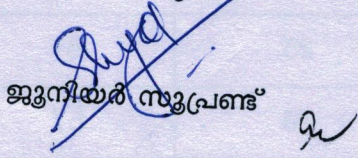 ജൂനിയർ സൂപ്രണ്ട്